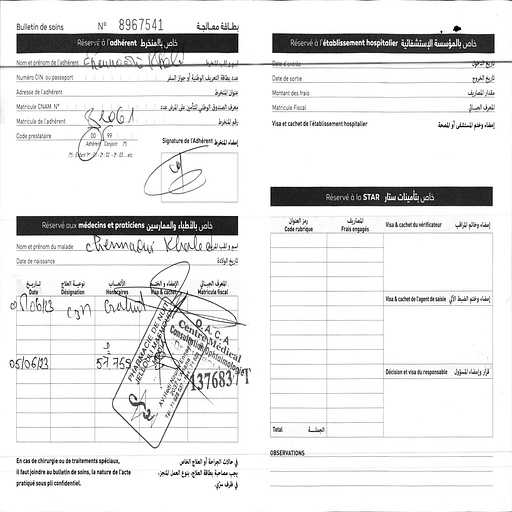 Bulletin de soins N° 8967541 بطاقة معالجة
Réservé à l'adhérent خاص بالمنخرط
Nom et prénom de l'adhérent
Numéro CIN ou passeport عدد بطاقة التعريف الوطنية أو جواز السفر
Adresse de l'adhérent عنوان المنخرط
Matricule CNAM N° معرف الصندوق الوطني للتأمين على المرض عدد
Matricule de l'adhérent رقم المنخرط
Code prestataire 00 99
Adhérent Conjoint
Signature de l'Adhérent إمضاء المنخرط
Réservé aux médecins et praticiens خاص بالأطباء والممارسين
Nom et prénom du malade Chennaoui Khaled اسم و لقب المريض
Date de naissance تاريخ الولادة
تاريخ نوعية العلاج الأتعاب الإمضاء و الختم المعرف الجبائي
Date Désignation Honoraires Visa & cachet Matricule fiscal
05/06/23 57.755
PHARMACIE DE NUIT
O.A.C.A
Centre Médical
137683/T
En cas de chirurgie ou de traitements spéciaux,
il faut joindre au bulletin de soins, la nature de l'acte
pratiqué sous pli confidentiel.
في حالات الجراحة أو العلاج الخاص
يجب مصاحبة بطاقة العلاج، بنوع العمل المنجز،
في ظرف سري.
Réservé à l'établissement hospitalier خاص بالمؤسسة الإستشفائية
Date d'entrée تاريخ الدخول
Date de sortie تاريخ الخروج
Montant des frais مقدار المصاريف
Matricule Fiscal المعرف الجبائي
Visa et cachet de l'établissement hospitalier إمضاء وختم المستشفى أو المصحة
Réservé à la STAR خاص بتأمينات ستار
رمز العنوان المصاريف
Code rubrique Frais engagés Visa & cachet du vérificateur إمضاء وخاتم المراقب
Visa & cachet de l'agent de saisie إمضاء وختم الضبط الآلي
Décision et visa du responsable قرار وإمضاء المسؤول
Total الجملة
OBSERVATIONS